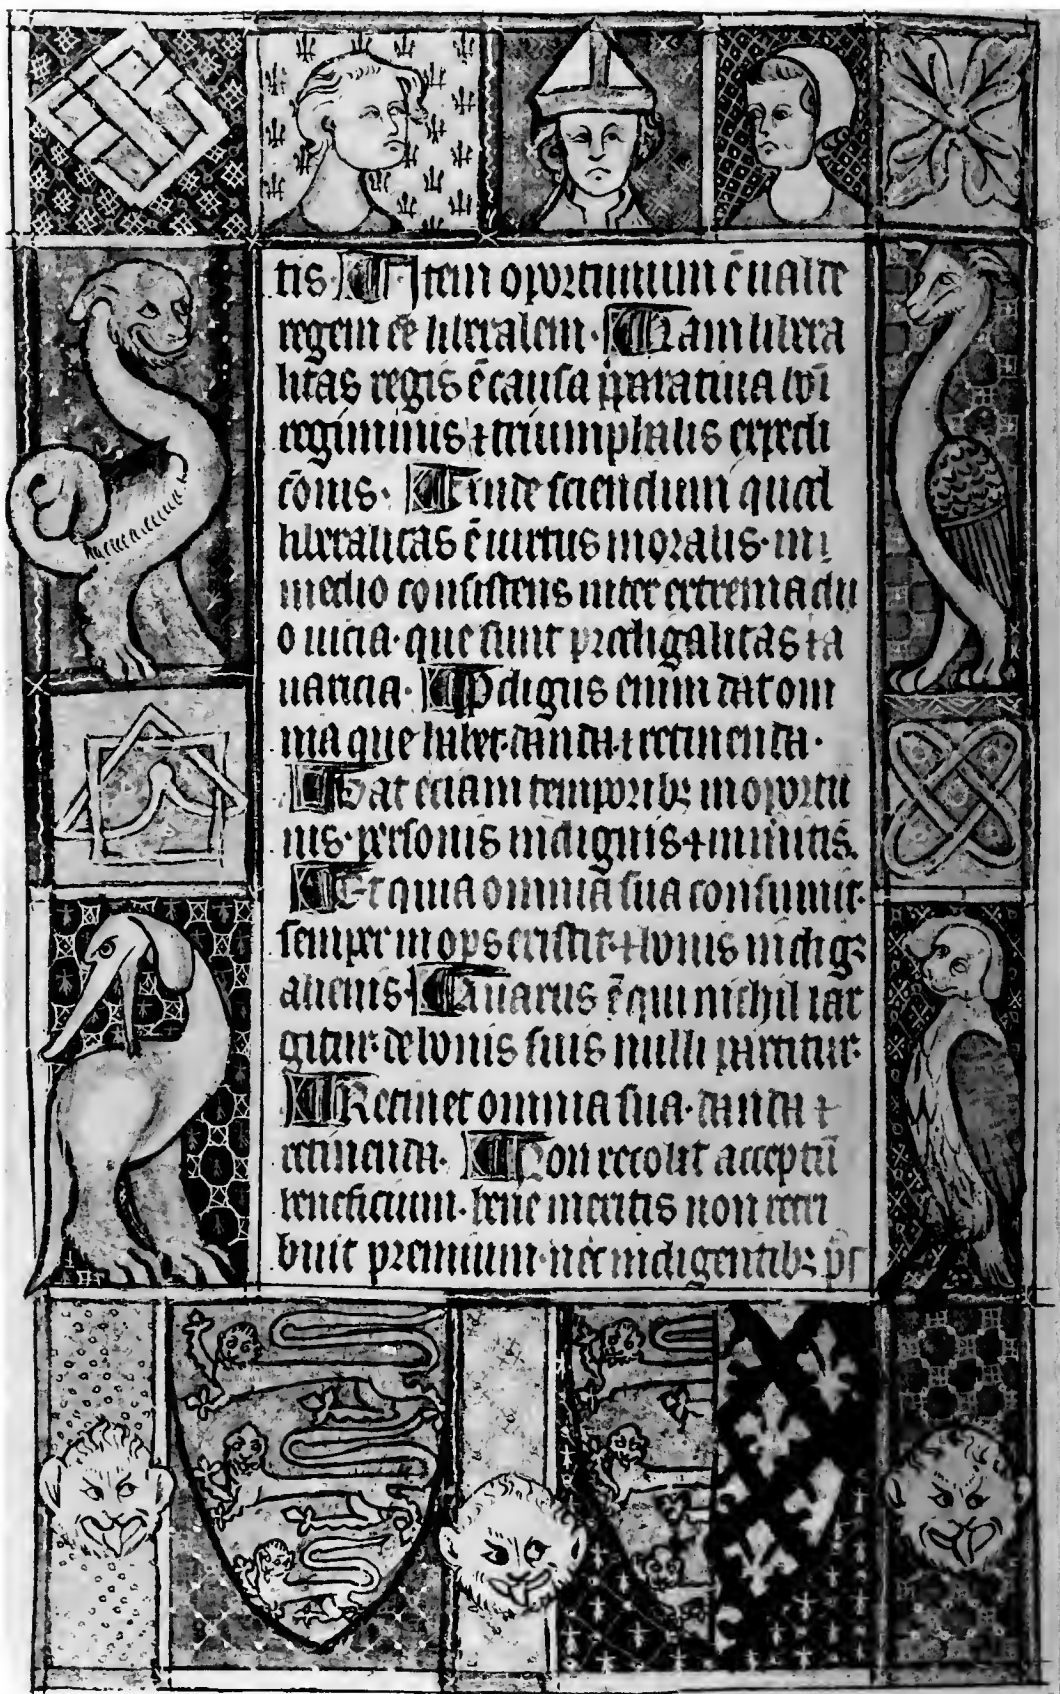 tis. Item oportunum ē ualde
regem eē liberalem. Nam libera
litas regis ē causa p̄paratiua boni
regiminis ⁊ triumphalis expedi
cōnis. Unde sciendum quod
liberalitas ē uirtus moralis. in
medio consistens inter extrema du
o uicia. que sunt prodigalitas ⁊ a
uaricia. Prodigus enim dat om
nia que habet. danda. ⁊ retinenda.
Dat eciam temporibꝫ inoportu
nis. personis indignis ⁊ inimicis.
Et quia omnia sua consumit.
semper inops existit. ⁊ bonis indigꝫ
alienis. Auarus ē qui nichil lar
gitur. de bonis suis nulli partitur.
Retinet omnia sua. danda ⁊
retinenda. Non recolit acceptū
beneficium. bene meritis non retri
buit premium. nec indigentibꝫ